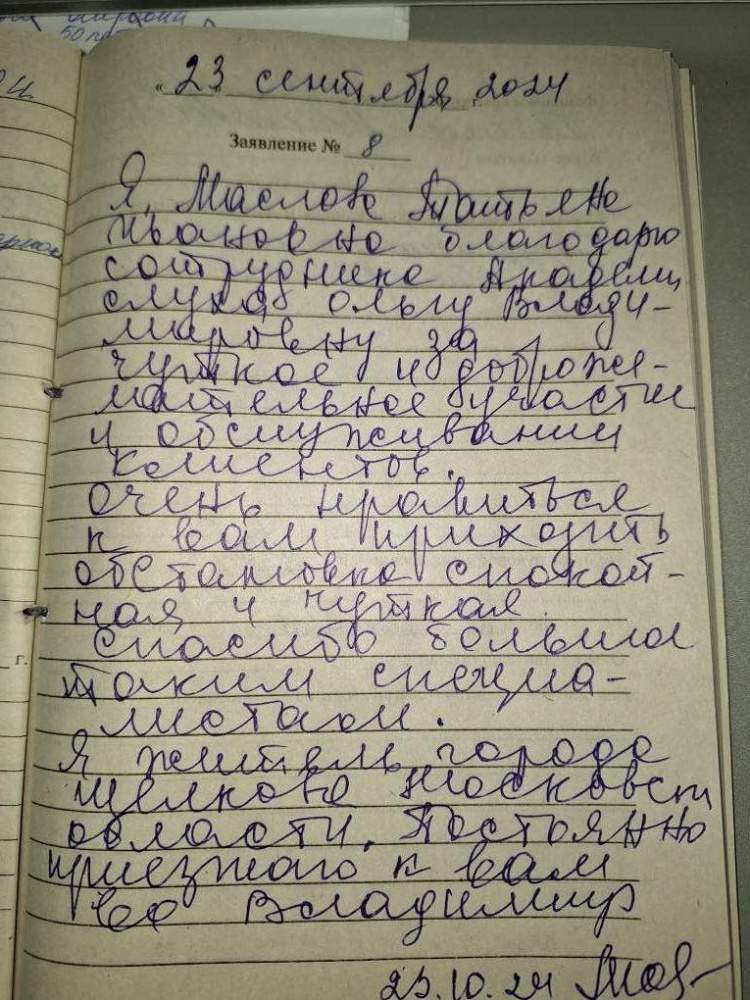 23 сентября 2024
Заявление № 8
Я, Маслова Татьяна
Ивановна благодарю
сотрудника Академи
слуха Ольгу Влади-
мировну за
чуткое и доброже-
лательное участие
и обслуживании
клиентов.
очень нравиться
к вам приходить
обстановка спокой-
ная и чуткая
спасибо большое
таким специа-
листам.
Я житель города
Щелкова Московск
области. Постоянно
приезжаю к вам
во Владимир
23.10.24